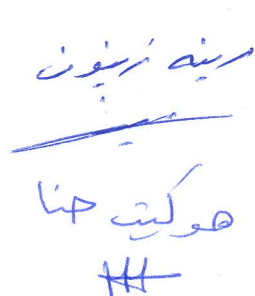 رينه زيتون
هوكيت حنا